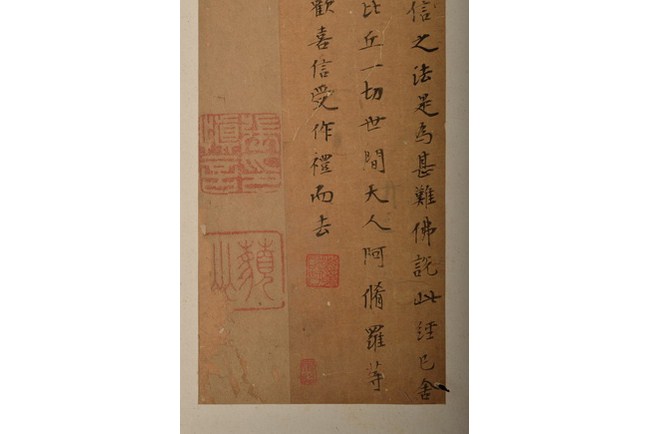 信之法是為甚難佛說此經已舍
比丘一切世間天人阿脩羅等
歡喜信受作禮而去